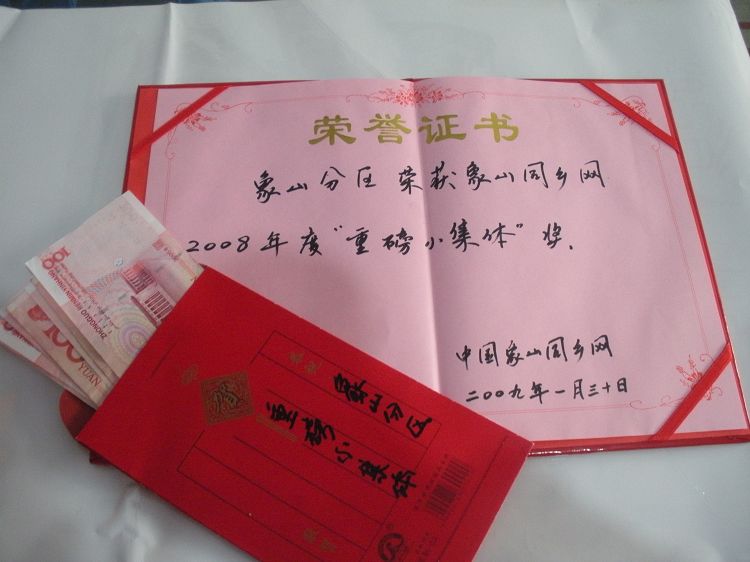 荣誉证书
象山分区 荣获象山同乡网
2008年度“重磅小集体”奖.
中国象山同乡网
二00九年一月三十日
象山分区
重磅小集体
贺
100
YUAN
ZHONGGUO RENMIN YINHANG